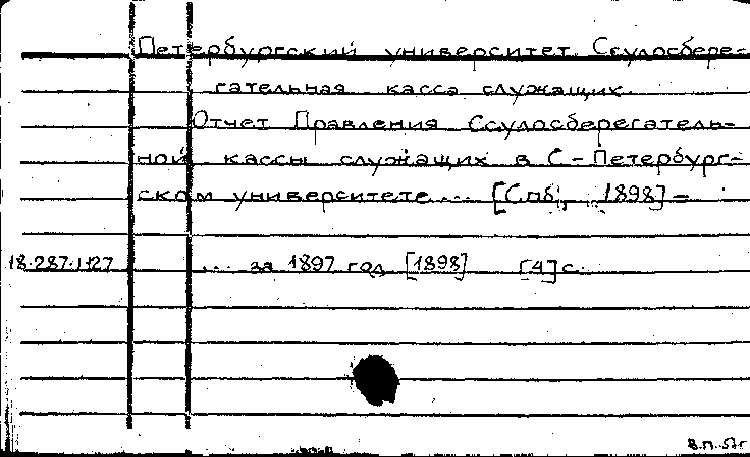 Петербургский университет Ссудосбере-
гательная касса служащих.
Отчет Правления Ссудосберегатель-
ной кассы служащих в С-Петербург-
ском университете... [Спб, 1898] -
18.287.1.127 ... за 1897 год [1898] [4] с.
В.П.-57г